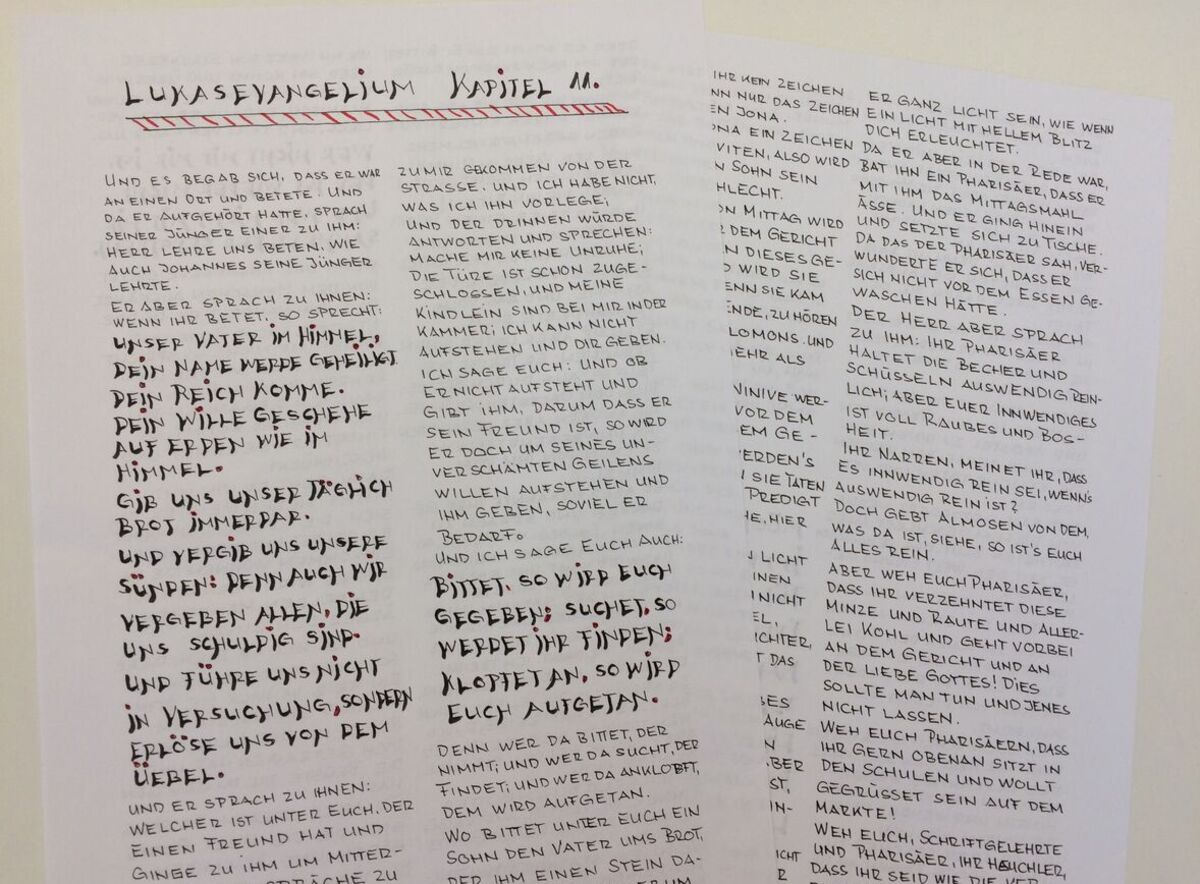 LUKASEVANGELIUM KAPITEL 11.
UND ES BEGAB SICH, DASS ER WAR
AN EINEN ORT UND BETETE. UND
DA ER AUFGEHÖRT HATTE, SPRACH
SEINER JÜNGER EINER ZU IHM:
HERR LEHRE UNS BETEN, WIE
AUCH JOHANNES SEINE JÜNGER
LEHRTE.
ER ABER SPRACH ZU IHNEN:
WENN IHR BETET, SO SPRECHT:
UNSER VATER IM HIMMEL,
DEIN NAME WERDE GEHEILIGT
DEIN REICH KOMME.
DEIN WILLE GESCHEHE
AUF ERDEN WIE IM
HIMMEL.
GIB UNS UNSER TÄGLICH
BROT IMMERDAR.
UND VERGIB UNS UNSERE
SÜNDEN: DENN AUCH WIR
VERGEBEN ALLEN, DIE
UNS SCHULDIG SIND.
UND FÜHRE UNS NICHT
IN VERSUCHUNG, SONDERN
ERLÖSE UNS VON DEM
ÜEBEL.
UND ER SPRACH ZU IHNEN:
WELCHER IST UNTER EUCH, DER
EINEN FREUND HAT UND
GINGE ZU IHM UM MITTER-
SPRÄCHE ZU
ZU MIR GEKOMMEN VON DER
STRASSE. UND ICH HABE NICHT,
WAS ICH IHN VORLEGE;
UND DER DRINNEN WÜRDE
ANTWORTEN UND SPRECHEN:
MACHE MIR KEINE UNRUHE;
DIE TÜRE IST SCHON ZUGE-
SCHLOSSEN, UND MEINE
KINDLEIN SIND BEI MIR IN DER
KAMMER; ICH KANN NICHT
AUFSTEHEN UND DIR GEBEN.
ICH SAGE EUCH: UND OB
ER NICHT AUFSTEHT UND
GIBT IHM, DARUM DASS ER
SEIN FREUND IST, SO WIRD
ER DOCH UM SEINES UN-
VERSCHÄMTEN GEILENS
WILLEN AUFSTEHEN UND
IHM GEBEN, SOVIEL ER
BEDARF.
UND ICH SAGE EUCH AUCH:
BITTET, SO WIRD EUCH
GEGEBEN; SUCHET, SO
WERDET IHR FINDEN;
KLOPFET AN, SO WIRD
EUCH AUFGETAN.
DENN WER DA BITTET, DER
NIMMT; UND WER DA SUCHT, DER
FINDET; UND WER DA ANKLOBFT,
DEM WIRD AUFGETAN.
WO BITTET UNTER EUCH EIN
SOHN DEN VATER UMS BROT,
DER IHM EINEN STEIN DA-
IHR KEIN ZEICHEN
NN NUR DAS ZEICHEN
EN JONA.
ONA EIN ZEICHEN
VITEN, ALSO WIRD
N SOHN SEIN
HLECHT.
ON MITTAG WIRD
R DEM GERICHT
EN DIESES GE-
D WIRD SIE
ENN SIE KAM
ENDE, ZU HÖREN
LOMONS. UND
EHR ALS
NINIVE WER-
VOR DEM
EM GE-
ERDEN'S
SIE TATEN
PREDIGT
HE, HIER
LICHT
INEN
NICHT
EL,
ICHTER,
T DAS
BES
AUGE
N
ABER
ST,
IN-
ICHT
R
ER GANZ LICHT SEIN, WIE WENN
EIN LICHT MIT HELLEM BLITZ
DICH ERLEUCHTET.
DA ER ABER IN DER REDE WAR,
BAT IHN EIN PHARISÄER, DASS ER
MIT IHM DAS MITTAGSMAHL
ÄSSE. UND ER GING HINEIN
UND SETZTE SICH ZU TISCHE.
DA DAS DER PHARISÄER SAH, VER-
WUNDERTE ER SICH, DASS ER
SICH NICHT VOR DEM ESSEN GE-
WASCHEN HÄTTE.
DER HERR ABER SPRACH
ZU IHM: IHR PHARISÄER
HALTET DIE BECHER UND
SCHÜSSELN AUSWENDIG REIN-
LICH; ABER EUER INNWENDIGES
IST VOLL RAUBES UND BOS-
HEIT.
IHR NARREN, MEINET IHR, DASS
ES INNWENDIG REIN SEI, WENN'S
AUSWENDIG REIN IST?
DOCH GEBT ALMOSEN VON DEM,
WAS DA IST, SIEHE, SO IST'S EUCH
ALLES REIN.
ABER WEH EUCH PHARISÄER,
DASS IHR VERZEHNTET DIESE
MINZE UND RAUTE UND ALLER-
LEI KOHL UND GEHT VORBEI
AN DEM GERICHT UND AN
DER LIEBE GOTTES! DIES
SOLLTE MAN TUN UND JENES
NICHT LASSEN.
WEH EUCH PHARISÄERN, DASS
IHR GERN OBENAN SITZT IN
DEN SCHULEN UND WOLLT
GEGRÜSSET SEIN AUF DEM
MARKTE!
WEH EUCH, SCHRIFTGELEHRTE
UND PHARISÄER, IHR HEUCHLER,
DASS IHR SEID WIE DIE VER